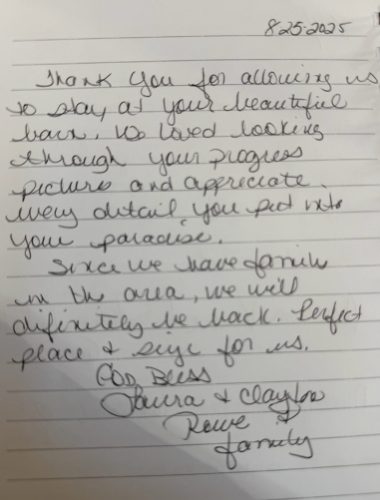 8-25-2025
Thank you for allowing us
to stay at your beautiful
barn. We loved looking
through your progress
pictures and appreciate
every detail you put into
your paradise.
Since we have family
in the area, we will
definitely be back. Perfect
place & size for us.
God Bless
Laura & Clayton
Rowe &
family